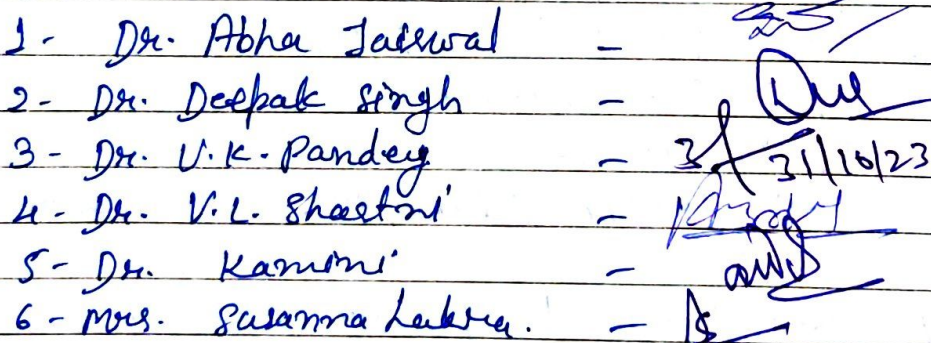 1- Dr. Abha Jaiswal -
2- Dr. Deepak Singh -
3- Dr. V.K. Pandey - 31/10/23
4- Dr. V.L. Shastri -
5- Dr. Kamini -
6- Mrs. Susanna Lakra. -